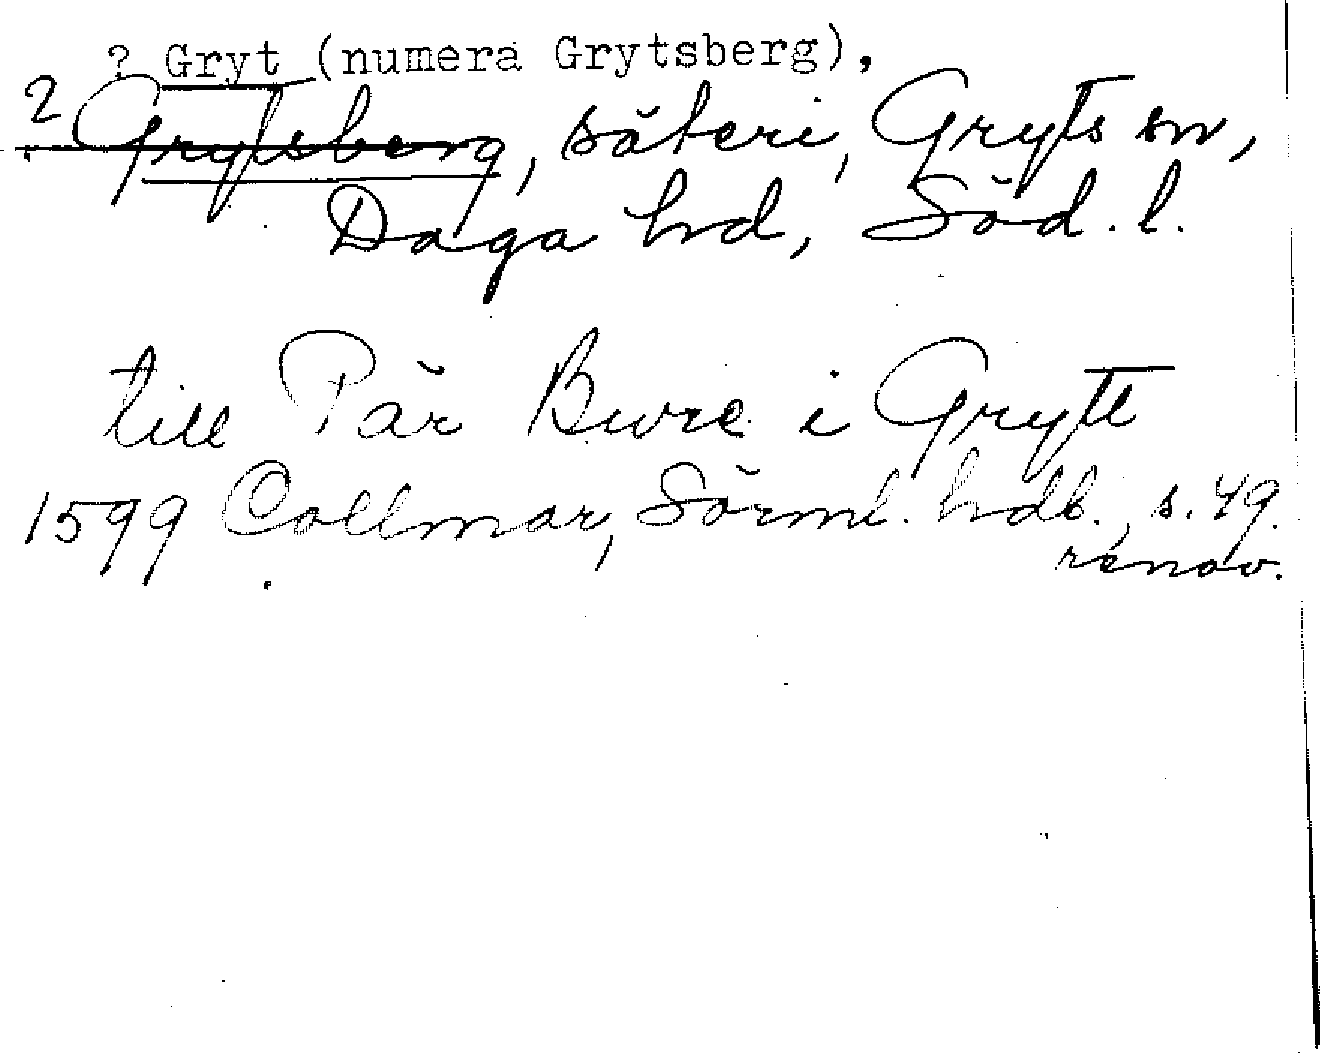 ? Gryt (numera Grytsberg),
? Grytsberg, säteri, Gryts sn,
Daga hd, Söd. l.
till Pär Bure i Grytt
1599 Collmar, Sörml. hdb., s. 49.
renov.